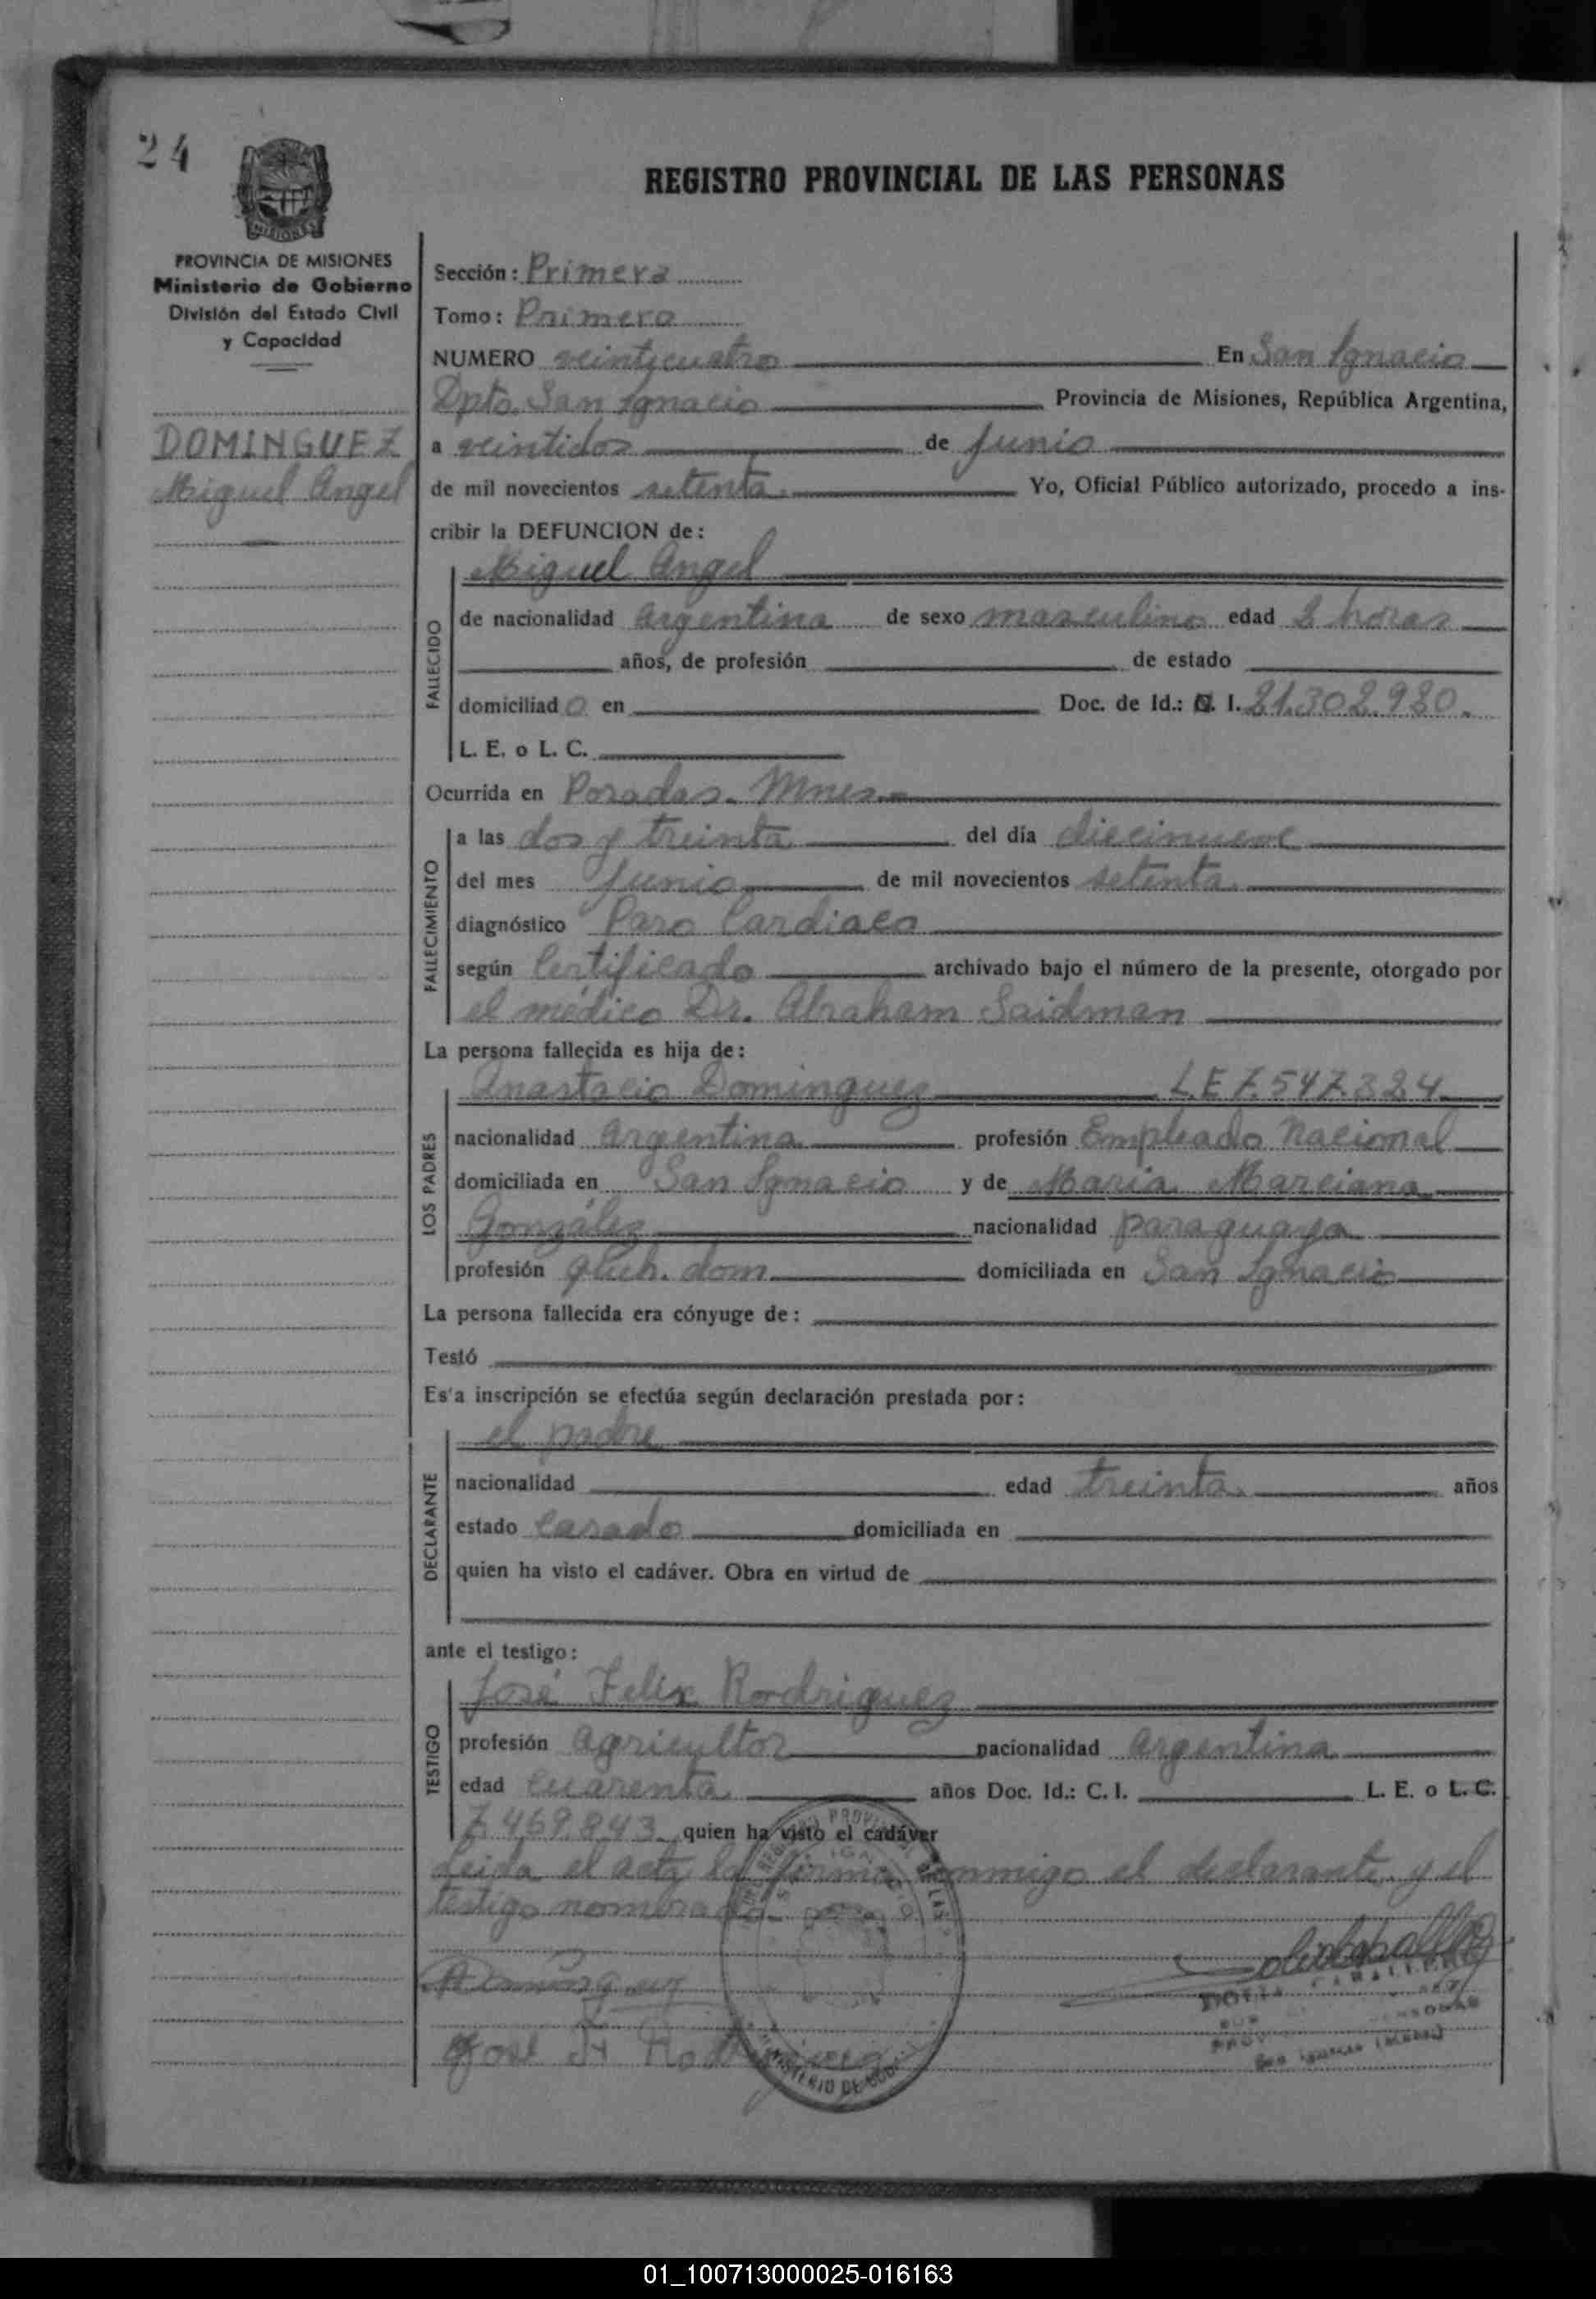 24
REGISTRO PROVINCIAL DE LAS PERSONAS
MISIONES
PROVINCIA DE MISIONES
Ministerio de Gobierno
División del Estado Civil
y Capacidad
DOMINGUEZ
Miguel Angel
Sección: Primera
Tomo: Primero
NUMERO veinticuatro En San Ignacio
Dpto. San Ignacio Provincia de Misiones, República Argentina,
a veintidos de Junio
de mil novecientos setenta. Yo, Oficial Público autorizado, procedo a ins-
cribir la DEFUNCION de:
Miguel Angel
FALLECIDO
de nacionalidad argentina de sexo masculino edad 2 horas
años, de profesión de estado
domiciliado en Doc. de Id.: I. 21.302.920.
L. E. o L. C.
Ocurrida en Posadas. Mnes.
FALLECIMIENTO
a las dos y treinta del día diecinueve
del mes Junio de mil novecientos setenta.
diagnóstico Paro Cardiaco
según Certificado archivado bajo el número de la presente, otorgado por
el médico Dr. Abraham Saidman
La persona fallecida es hija de:
LOS PADRES
Anastacio Dominguez L.E 7.547.324
nacionalidad argentina profesión Empleado Nacional
domiciliada en San Ignacio y de Maria Marciana
González nacionalidad paraguaya
profesión dom. domiciliada en San Ignacio
La persona fallecida era cónyuge de:
Testó
Es'a inscripción se efectúa según declaración prestada por:
DECLARANTE
el padre
nacionalidad edad treinta. años
estado Casado domiciliada en
quien ha visto el cadáver. Obra en virtud de
ante el testigo:
TESTIGO
José Felix Rodriguez
profesión agricultor nacionalidad argentina
edad cuarenta. años Doc. Id.: C. I. L. E. o L. C.
7.469.843 quien ha visto el cadáver
Leida el acta la firma conmigo el declarante y el
testigo nombrado.
Dominguez
José F Rodriguez
MINISTERIO DE GOB
01_100713000025-016163